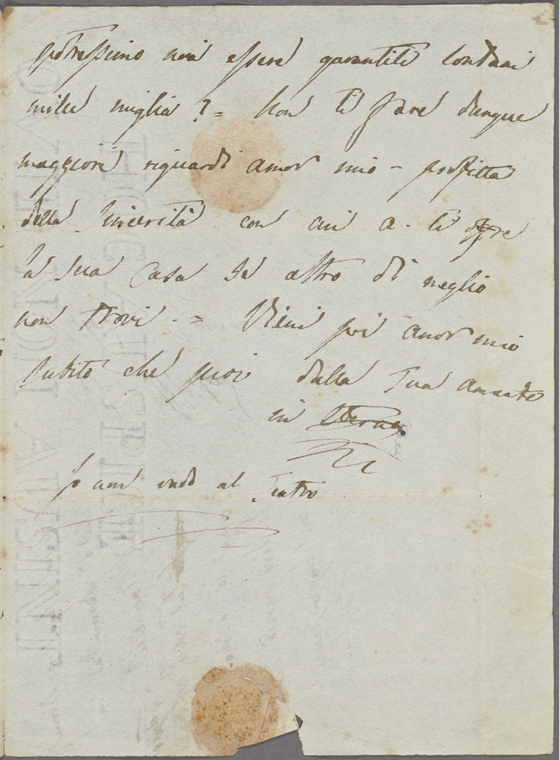 potressimo noi essere garantiti lontani
mille miglia? = Non ti fare dunque
maggiori riguardi amor mio - profitta
della sincerità con cui A. ti offre
la sua Casa se altro di meglio
non trovi - = Vieni poi amor mio
subito che puoi dalla tua amante
in
Io non vado al Teatro